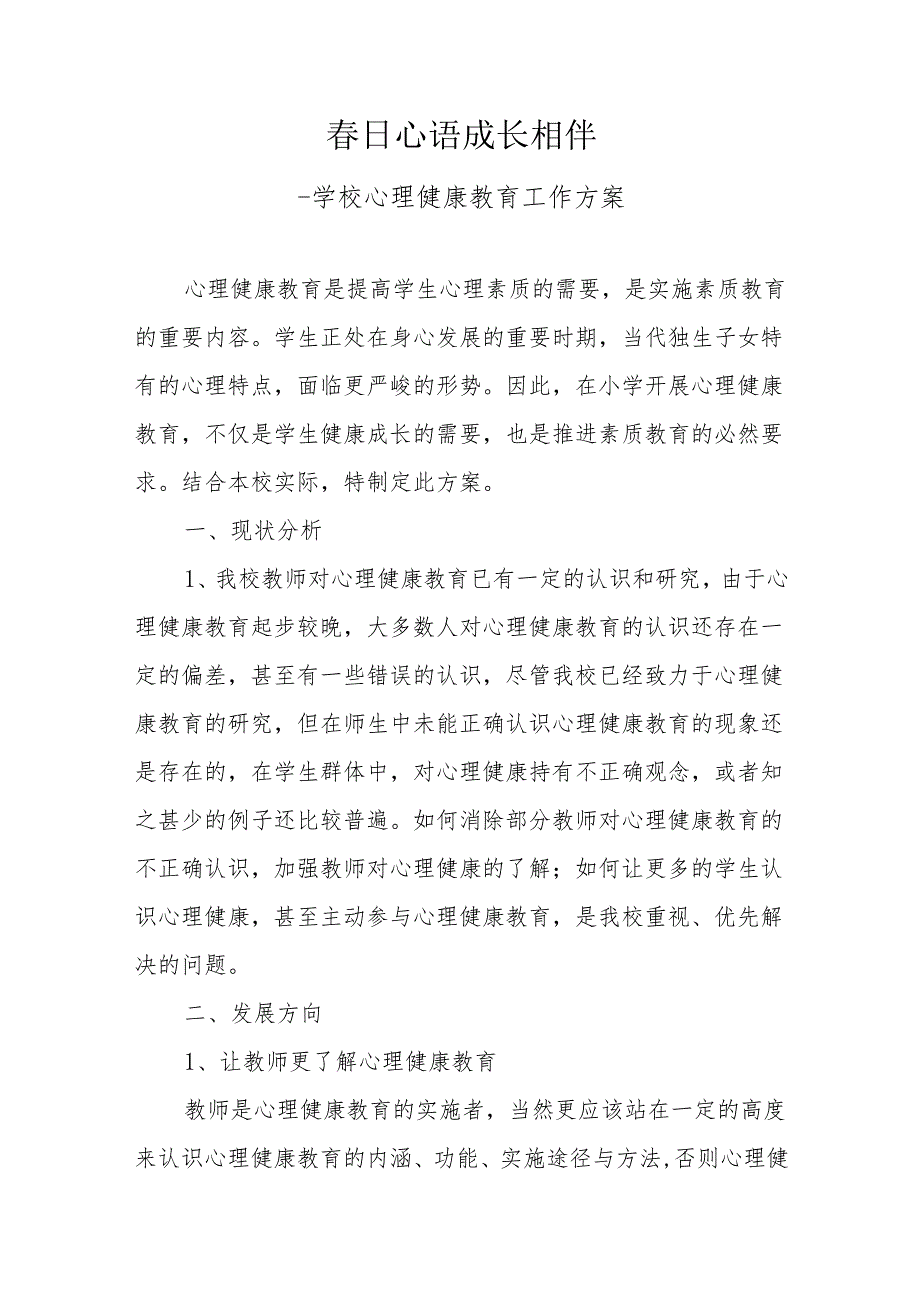 春日心语成长相伴
-学校心理健康教育工作方案
心理健康教育是提高学生心理素质的需要，是实施素质教育
的重要内容。学生正处在身心发展的重要时期，当代独生子女特
有的心理特点，面临更严峻的形势。因此，在小学开展心理健康
教育，不仅是学生健康成长的需要，也是推进素质教育的必然要
求。结合本校实际，特制定此方案。
一、现状分析
1、我校教师对心理健康教育已有一定的认识和研究,由于心
理健康教育起步较晚，大多数人对心理健康教育的认识还存在一
定的偏差，甚至有一些错误的认识，尽管我校已经致力于心理健
康教育的研究，但在师生中未能正确认识心理健康教育的现象还
是存在的，在学生群体中，对心理健康持有不正确观念，或者知
之甚少的例子还比较普遍。如何消除部分教师对心理健康教育的
不正确认识，加强教师对心理健康的了解；如何让更多的学生认
识心理健康，甚至主动参与心理健康教育，是我校重视、优先解
决的问题。
二、发展方向
1、让教师更了解心理健康教育
教师是心理健康教育的实施者，当然更应该站在一定的高度
来认识心理健康教育的内涵、功能、实施途径与方法,否则心理健